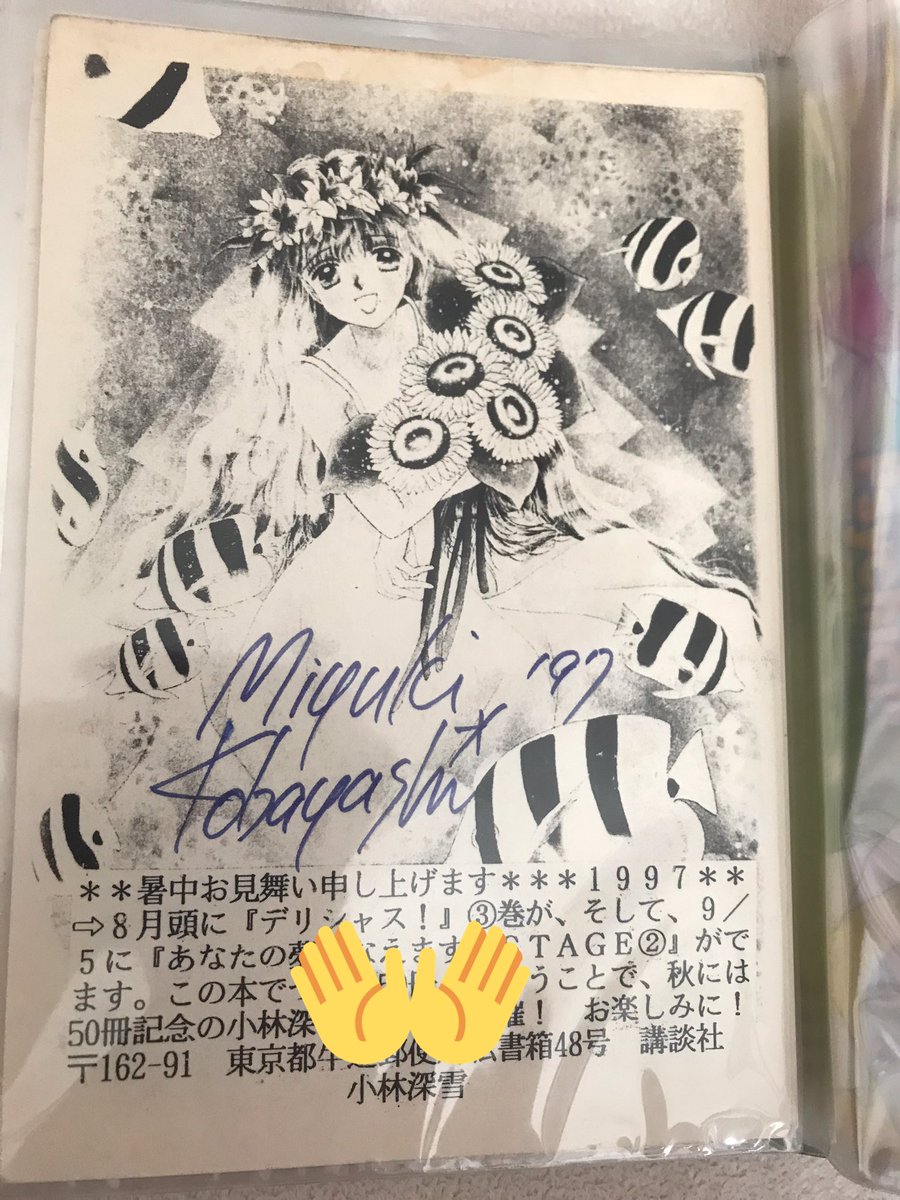 Miyuki '97
Kobayashi
**暑中お見舞い申し上げます***1997**
⇨8月頭に『デリシャス!』③巻が、そして、9/
5に『あなたの夢 なえます STAGE②』がで
ます。この本で うことで、秋には
50冊記念の小林深 催! お楽しみに!
〒162-91 東京都牛 郵便 書箱48号 講談社
小林深雪